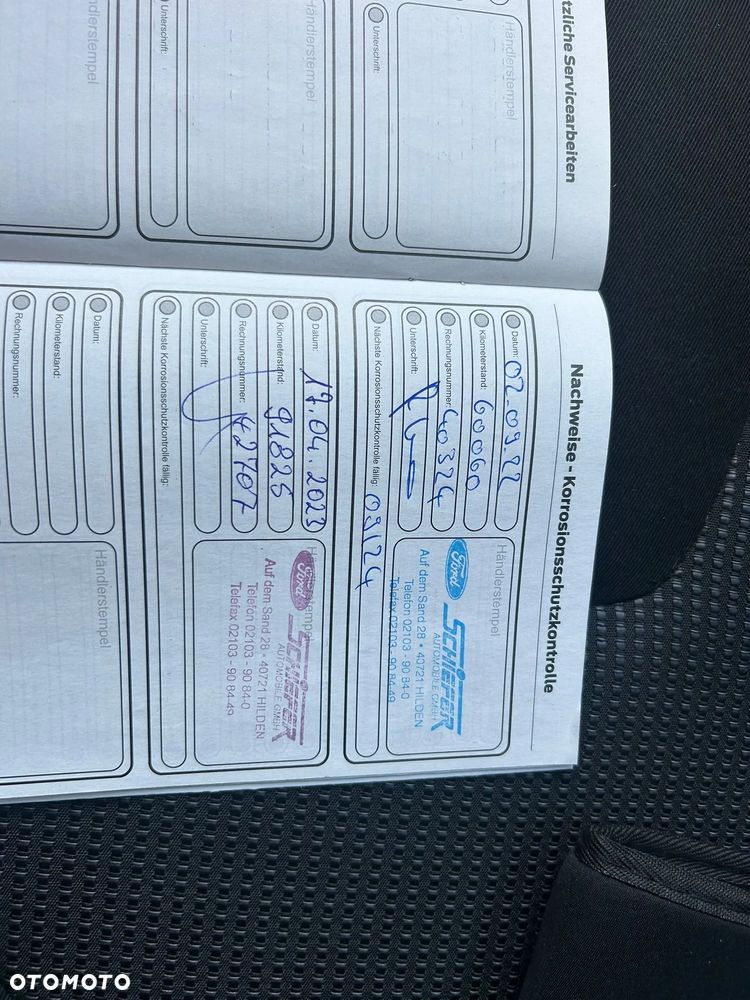 tzliche Servicearbeiten
Händlerstempel
Unterschrift:
Händlerstempel
Unterschrift:
Händlerstempel
Nachweise - Korrosionsschutzkontrolle
Datum: 02.09.22
Kilometerstand: 60060
Rechnungsnummer: 40324
Unterschrift:
Nächste Korrosionsschutzkontrolle fällig: 09/24
Händlerstempel
Ford SCHIEFER
AUTOMOBILE GMBH
Auf dem Sand 28 • 40721 HILDEN
Telefon 02103 - 90 84-0
Telefax 02103 - 90 84-49
Datum: 17.04.2023
Kilometerstand: 91825
Rechnungsnummer: 42707
Unterschrift:
Nächste Korrosionsschutzkontrolle fällig:
Händlerstempel
Ford SCHIEFER
AUTOMOBILE GMBH
Auf dem Sand 28 • 40721 HILDEN
Telefon 02103 - 90 84-0
Telefax 02103 - 90 84-49
Datum:
Kilometerstand:
Rechnungsnummer:
Händlerstempel
OTOMOTO